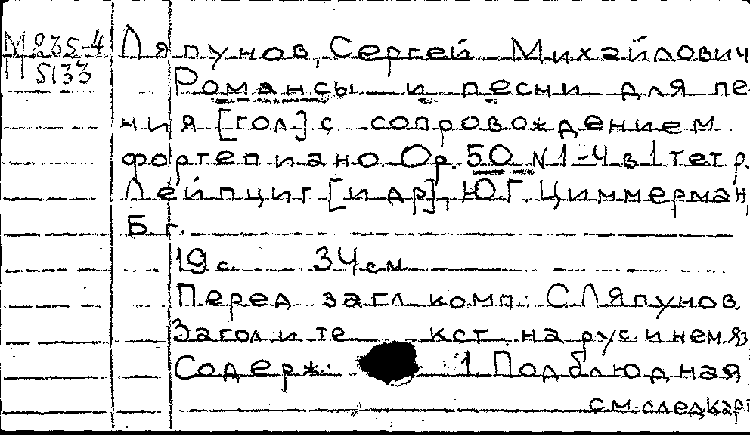 М 235-4 Ляпунов, Сергей Михайлович
П 5133 Романсы и песни для пе-
ния [гол] с сопровождением
фортепиано Op. 50 N 1-4 в 1 тетр.
Лейпциг [и др], Ю.Г. Циммерман,
Б г.
19 с. 34 см
Перед загл. комп: С Ляпунов
Загол и те кст на рус и нем яз
Содерж: 1 Подблюдная,
см. след карт